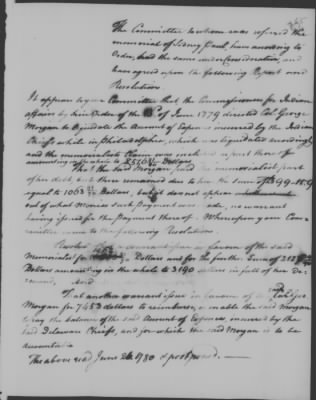 The Committee to whom was referred the
memorial of Sidney Paul, have according to
Order, had the same under Consideration, and
have agreed upon the following Report and
Resolution
It appears to your Committee that the Commissioners for Indian
affairs by their Order of the of June 1779 directed Col. George
Morgan to liquidate the Amount of Expences incurred by the Indian
Chiefs while in Philadelphia, which was liquidated accordingly
and the memorialists Claim was included as part thereof
amounting in the whole to Dollars
That the said Morgan paid the memorialist part
of his debt but there remained due to him the sum of
equal to 1063 Dollars, but it does not appear
out of what Monies such Payment was made, no warrant
having issued for the Payment thereof. Whereupon your Com-
mittee came to the following Resolution.
Resolved in favour of the said
Memorialist for Dollars and for the further Sum of
Dollars amounting in the whole to 3190 dollars in full of his De-
mand, And
That another warrant issue in favour of said Col. Geo
Morgan for dollars to reimburse & enable the said Morgan
to pay the balance of the said Amount of Expences, incurred by the
said Delaware Chiefs, and for which the said Morgan is to be
accountable
The above read June 1780 & postponed.